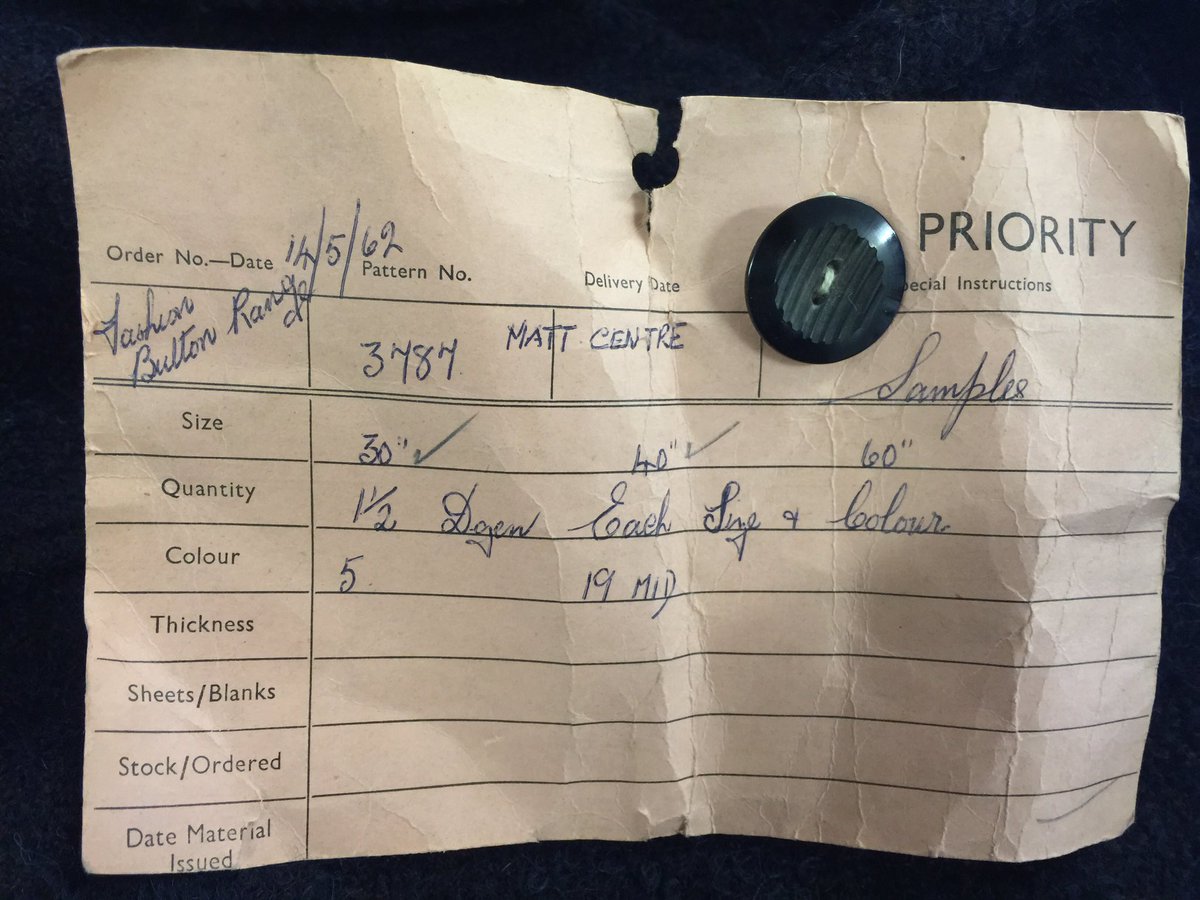 PRIORITY
Order No.—Date 14/5/62 Pattern No. Delivery Date ecial Instructions
Fashion Button Range 3787 MATT CENTRE Samples
Size 30" ✓ 40" ✓ 60"
Quantity 1½ Dozen Each Size & Colour
Colour 5 19 MID
Thickness
Sheets/Blanks
Stock/Ordered
Date Material
Issued